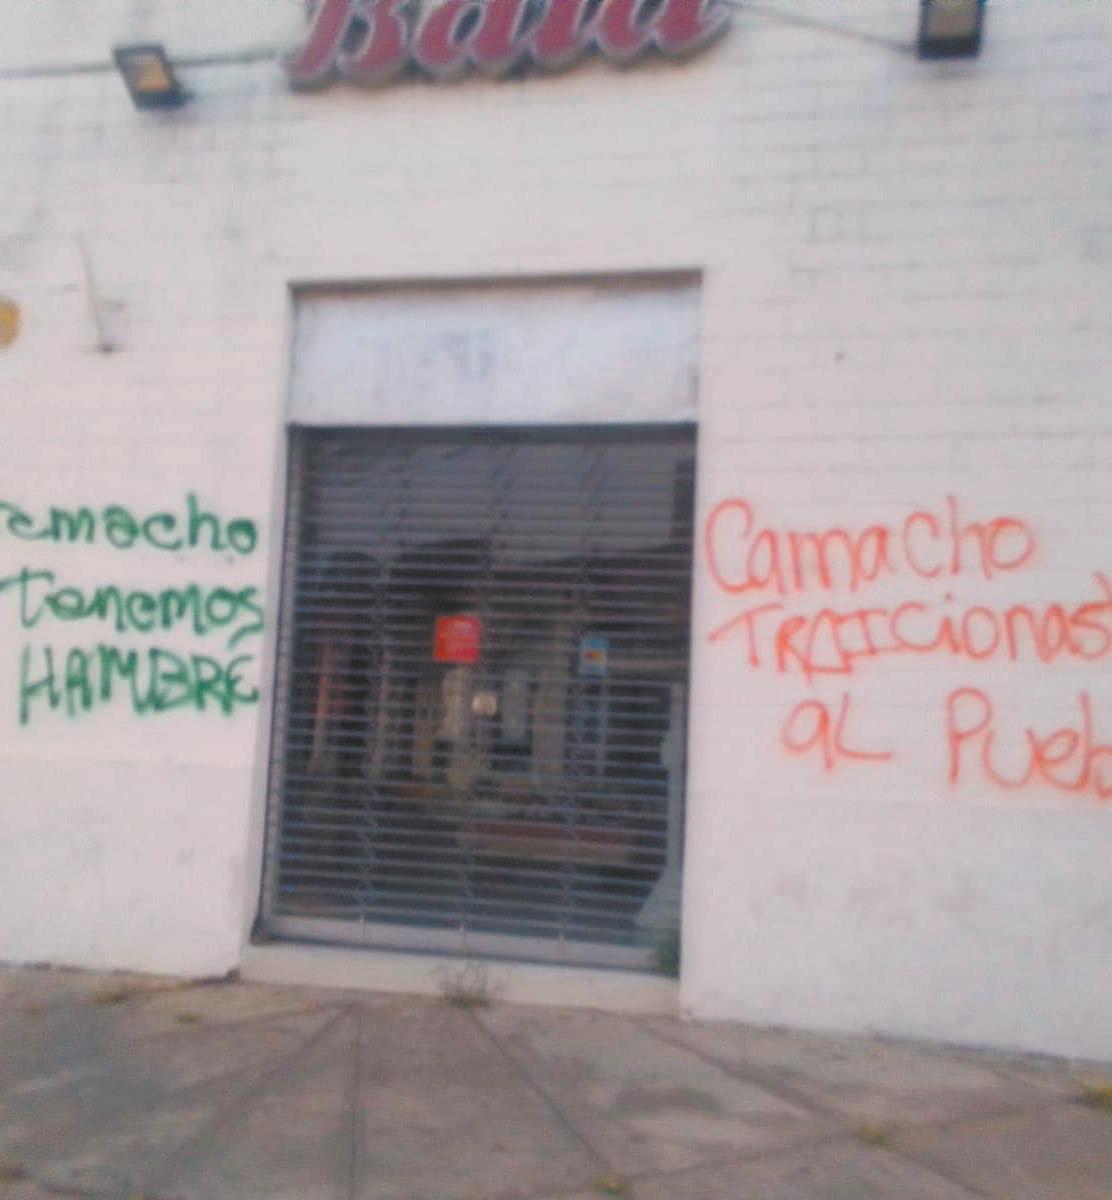 Bata
emacho
Tenemos
HAMBRE
Camacho
TRAICionas
aL Pueb